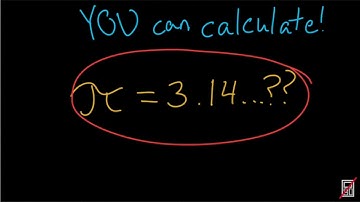 YOU can calculate!
π = 3.14...??